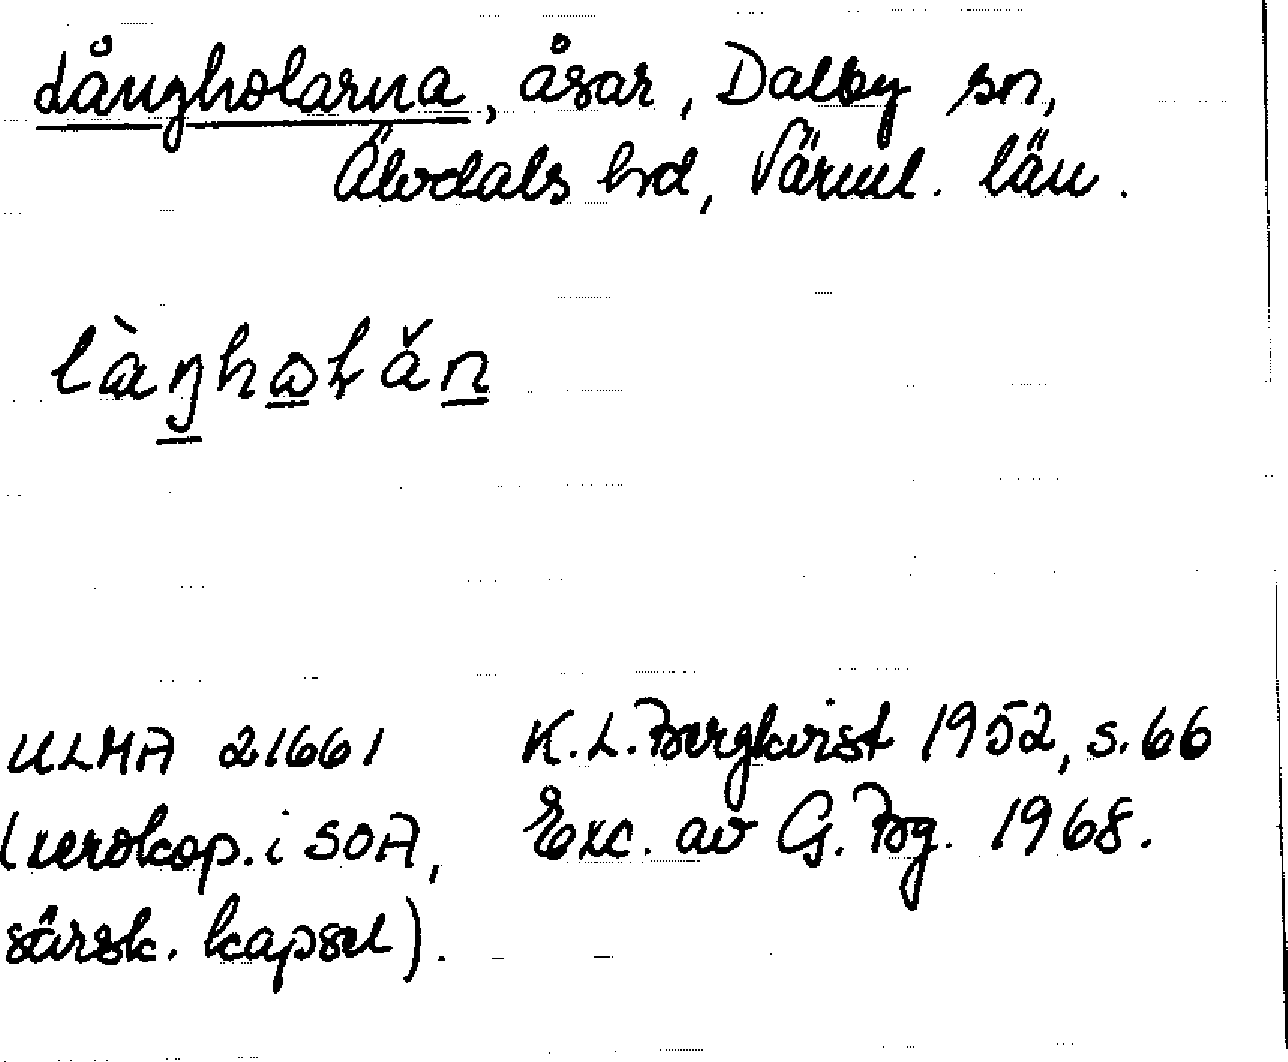 Långholarna, åsar, Dalby sn,
Älvdals hd, Värml. län.
ULMA 21661 K.L. Bergkvist 1952, s. 66
(xerokop. i SOA, Exc. av G. Bg. 1968.
särsk. kapsel).